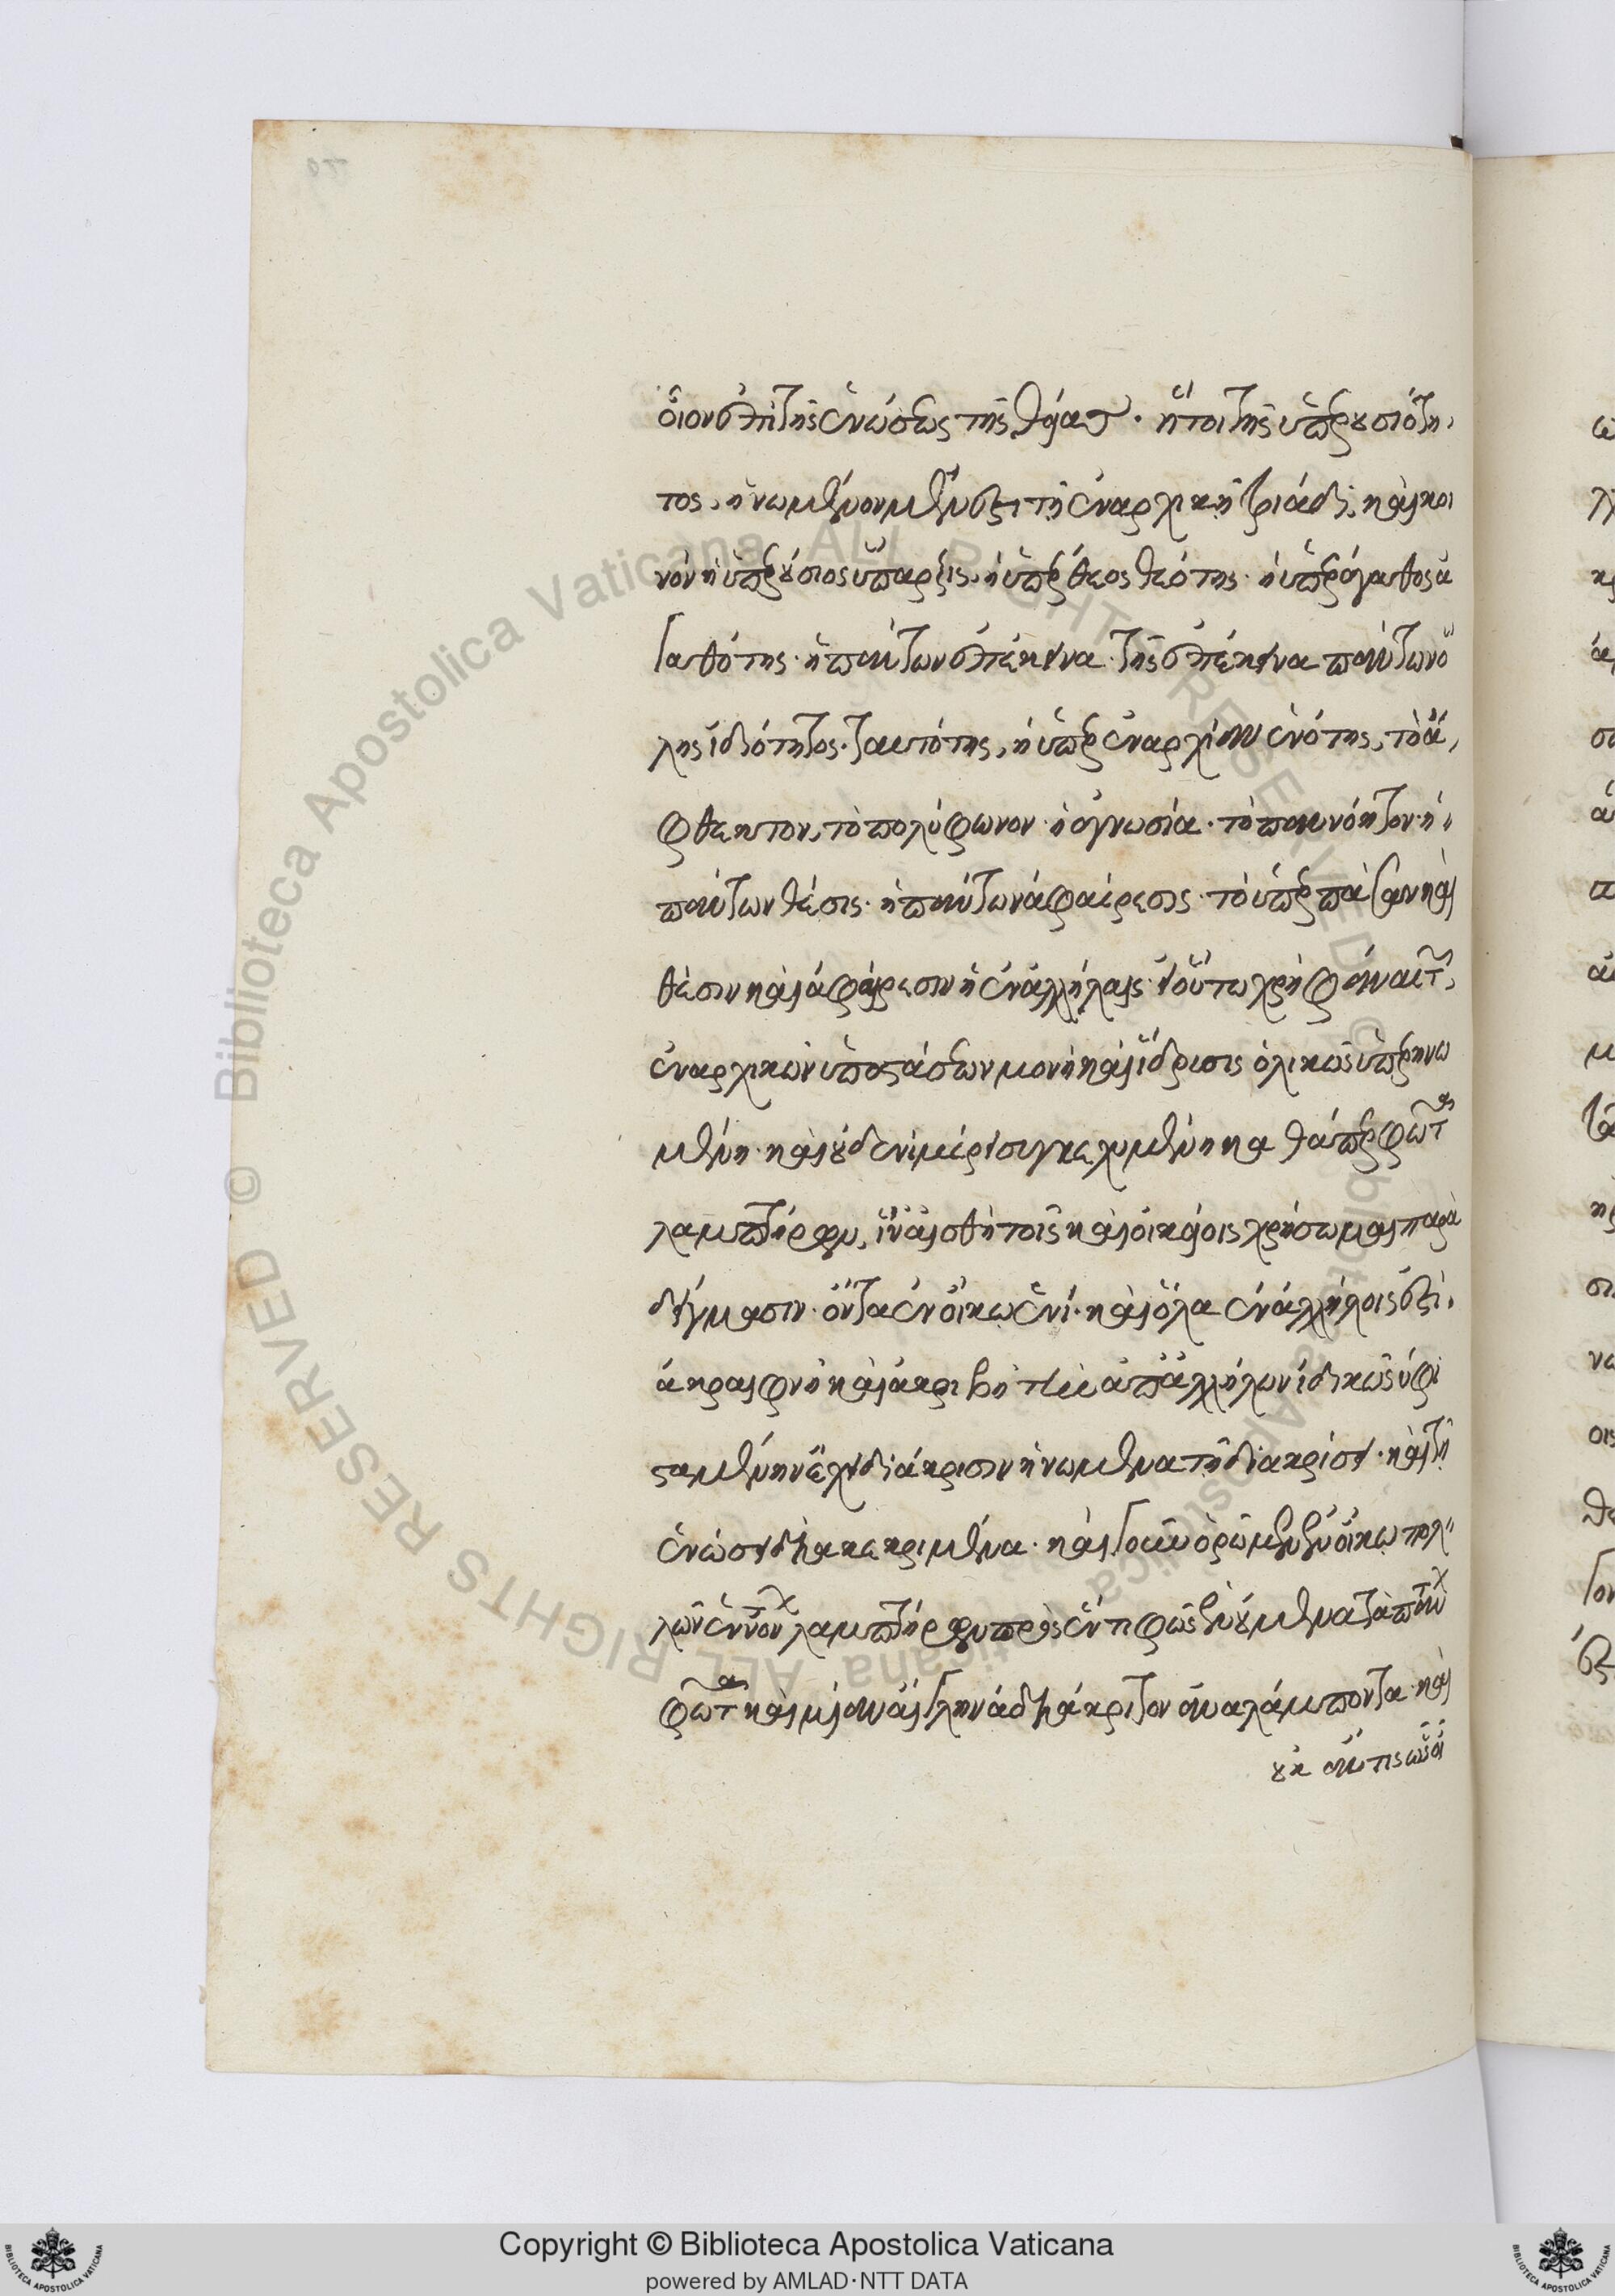 οἷον ἐπὶ τῆς ἑνώσεως τῆς θείας· ἤτοι τῆς ὑπερουσιότη-
τος, ἡνωμένον μέν ἐστι τῇ ἑναρχικῇ τριάδι, καὶ κοι
νὸν ἡ ὑπερούσιος ὕπαρξις, ἡ ὑπέρθεος θεότης· ἡ ὑπεράγαθος ἀ
γαθότης· ἡ πάντων ἐπέκεινα· τῆς ἐπέκεινα πάντων ὅ
λης ἰδιότητος· ταυτότης, ἡ ὑπὲρ ἑναρχίαν ἑνότης, τὸ ἄ-
φθεγκτον, τὸ πολύφωνον· ἡ ἀγνωσία· τὸ παννόητον· ἡ
πάντων θέσις· ἡ πάντων ἀφαίρεσις· τὸ ὑπὲρ πᾶσαν καὶ
θέσιν καὶ ἀφαίρεσιν ἡ ἐν ἀλλήλαις· εἰ οὕτω χρὴ φάναι τῶν
ἑναρχικῶν ὑποστάσεων μονὴ καὶ ἵδρυσις ὁλικῶς ὑπερηνω
μένη· καὶ οὐδενὶ μέρει συγκεχυμένη καθάπερ φῶτα
λαμπτήρων, ἵνα αἰσθητοῖς καὶ οἰκείοις χρήσωμαι παρα
δείγμασιν· ὄντα ἐν οἴκῳ ἑνί· καὶ ὅλα ἐν ἀλλήλοις ἐστὶ.
ἀκραιφνῆ καὶ ἀκριβῆ τὴν ἀπ' ἀλλήλων ἰδικῶς ὑφι
σταμένην ἔχει διάκρισιν ἡνωμένα τῇ διακρίσει· καὶ τῇ
ἑνώσει διακεκριμένα· καὶ γοῦν ὁρῶμεν ἐν οἴκῳ πολ-
λῶν ἐνόντων λαμπτήρων πρὸς ἕν τι φῶς ἑνούμενα τὰ πάντων
φῶτα καὶ μίαν αἴγλην ἀδιάκριτον ἀναλάμποντα· καὶ
οὐκ ἄν τις ὡς οἶ